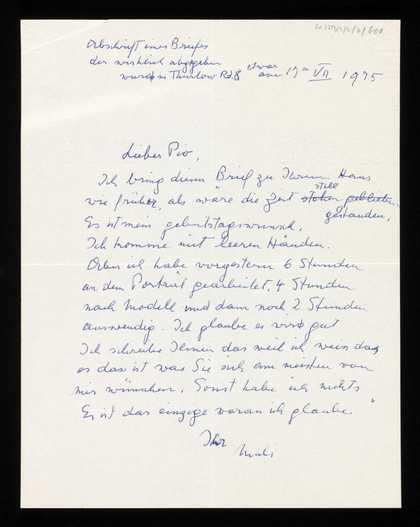 Abschrift eines Briefes
der wirklich abgegeben
wurde in Thurlow Rd 8 etwa
am 17ten VII 1975
Lieber Pio,
Ich bring diesen Brief zu Ihrem Haus
wie früher, als wäre die Zeit still stehen geblieben
gestanden.
Es ist mein geburtstagswunsch.
Ich komme mit leeren Händen.
Aber ich habe vorgestern 6 Stunden
an dem Portrait gearbeitet. 4 Stunden
nach Modell und dann noch 2 Stunden
auswendig. Ich glaube es wird gut
Ich schreibe Ihnen das weil ich weis das
es das ist was Sie sich am meisten von
mir wünschen. Sonst habe ich nichts
Es ist das einzige woran ich glaube."
Ihr